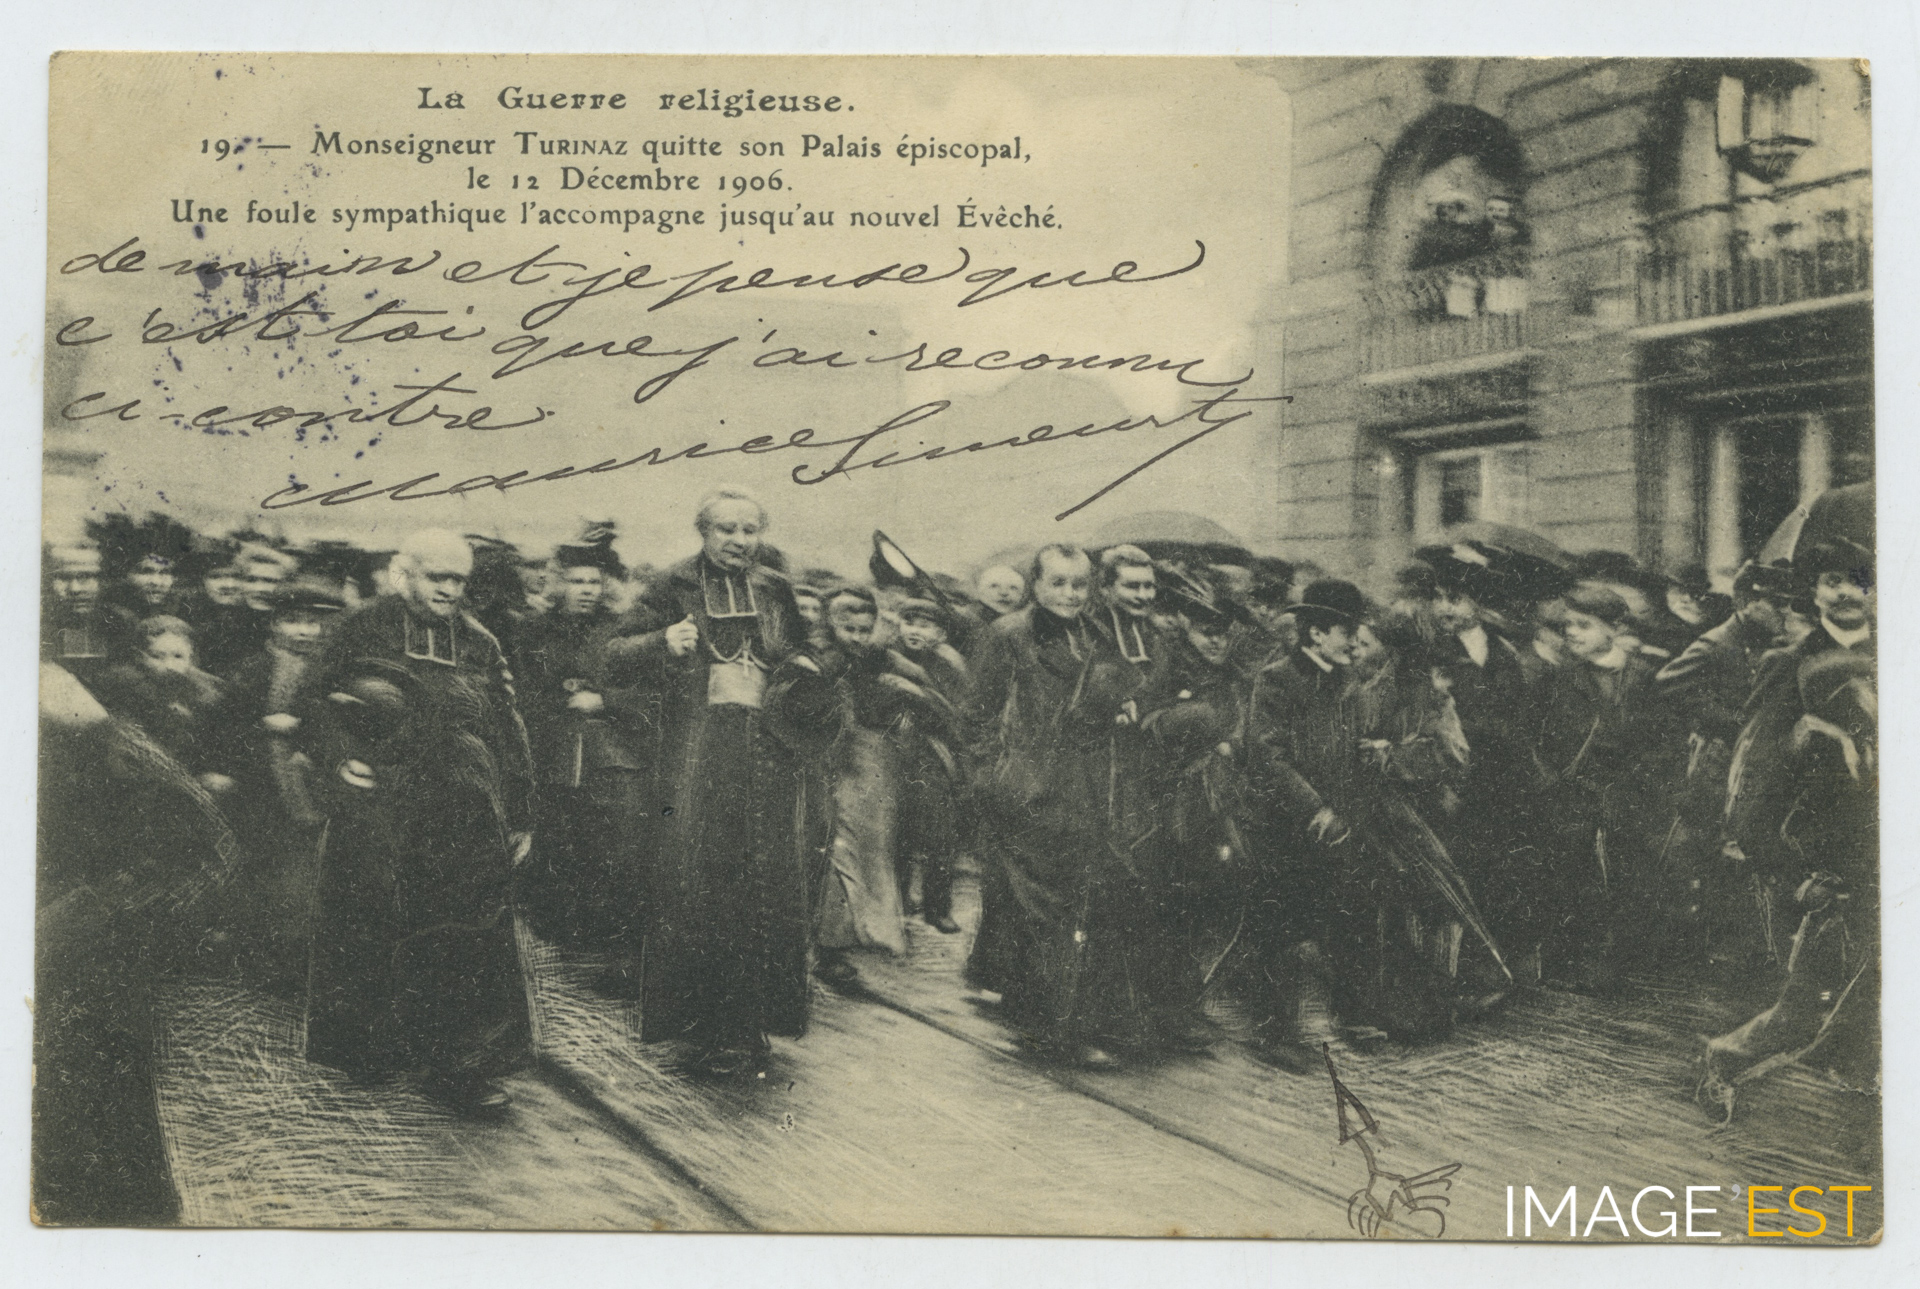 La Guerre religieuse.
19. — Monseigneur TURINAZ quitte son Palais épiscopal,
le 12 Décembre 1906.
Une foule sympathique l'accompagne jusqu'au nouvel Évêché.
demain et je pense que
c'est toi que j'ai reconnu
ci-contre.
Maurice
IMAGE'EST